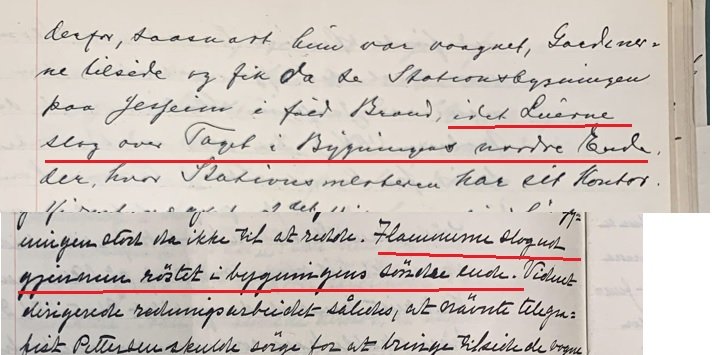 derfor, saasnart hun var vaagnet, Gardiner=
ne tilside og fik da se Stationsbygningen
paa Jesheim i fuld Brand, idet Luerne
slog over Taget i Bygningens nordre Ende,
der, hvor Stationsmesteren har sit Kontor.
ningen stod da ikke til at redde. Flammerne slog ud
gjennem röstet i bygningens söndre ende. Vidnet
dirigerede redningsarbeidet således, at nävnte telegra-
fist Pettersen skulde sörge for at bringe tilside de vogne